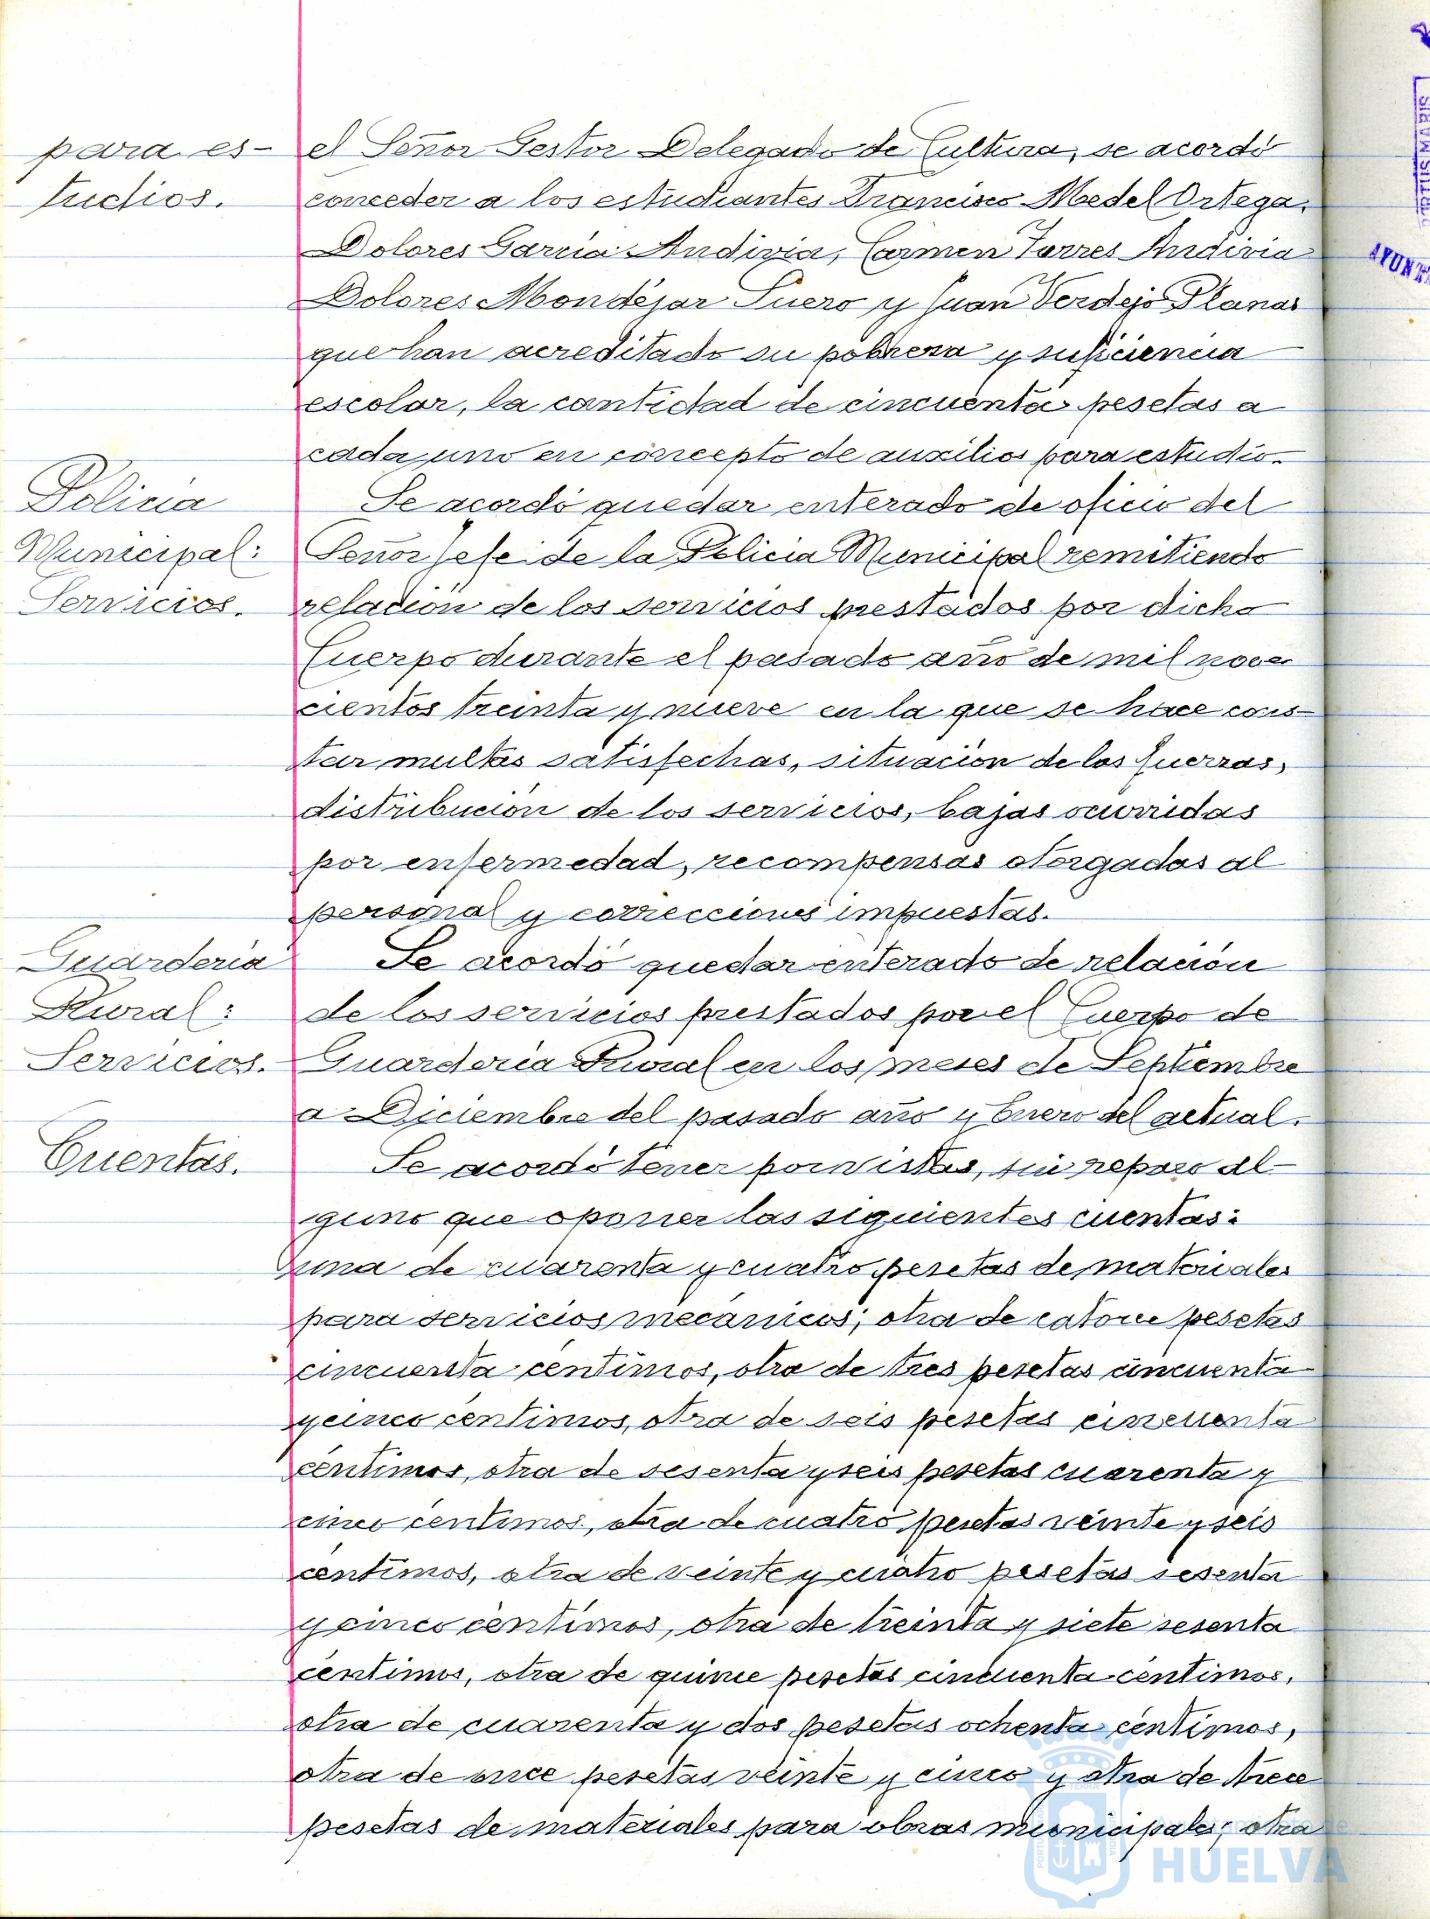 para es-
tudios.
el Señor Gestor Delegado de Cultura, se acordó
conceder a los estudiantes Francisco Medel Ortega,
Dolores García Andivia, Carmen Torres Andivia
Dolores Mondéjar Suero y Juan Verdejo Planas
que han acreditado su pobreza y suficiencia
escolar, la cantidad de cincuenta pesetas a
cada uno en concepto de auxilios para estudio.
Policía
Municipal:
Servicios.
Se acordó quedar enterado de oficio del
Señor Jefe de la Policía Municipal remitiendo
relación de los servicios prestados por dicho
Cuerpo durante el pasado año de mil nove-
cientos treinta y nueve en la que se hace cons-
tar multas satisfechas, situación de las fuerzas,
distribución de los servicios, bajas ocurridas
por enfermedad, recompensas otorgadas al
personal y correcciones impuestas.
Guardería
Rural:
Servicios.
Se acordó quedar enterado de relación
de los servicios prestados por el Cuerpo de
Guardería Rural en los meses de Septiembre
a Diciembre del pasado año y Enero del actual.
Cuentas.
Se acordó tener por vistas, sin reparo al-
guno que oponer las siguientes cuentas:
una de cuarenta y cuatro pesetas de materiales
para servicios mecánicos; otra de catorce pesetas
cincuenta céntimos, otra de tres pesetas cincuenta
y cinco céntimos, otra de seis pesetas cincuenta
céntimos, otra de sesenta y seis pesetas cuarenta y
cinco céntimos, otra de cuatro pesetas veinte y seis
céntimos, otra de veinte y cuatro pesetas sesenta
y cinco céntimos, otra de treinta y siete sesenta
céntimos, otra de quince pesetas cincuenta céntimos,
otra de cuarenta y dos pesetas ochenta céntimos,
otra de once pesetas veinte y cinco y otra de trece
pesetas de materiales para obras municipales; otra
PORTUS MARIS
AYUNT
Ayuntamiento de
HUELVA